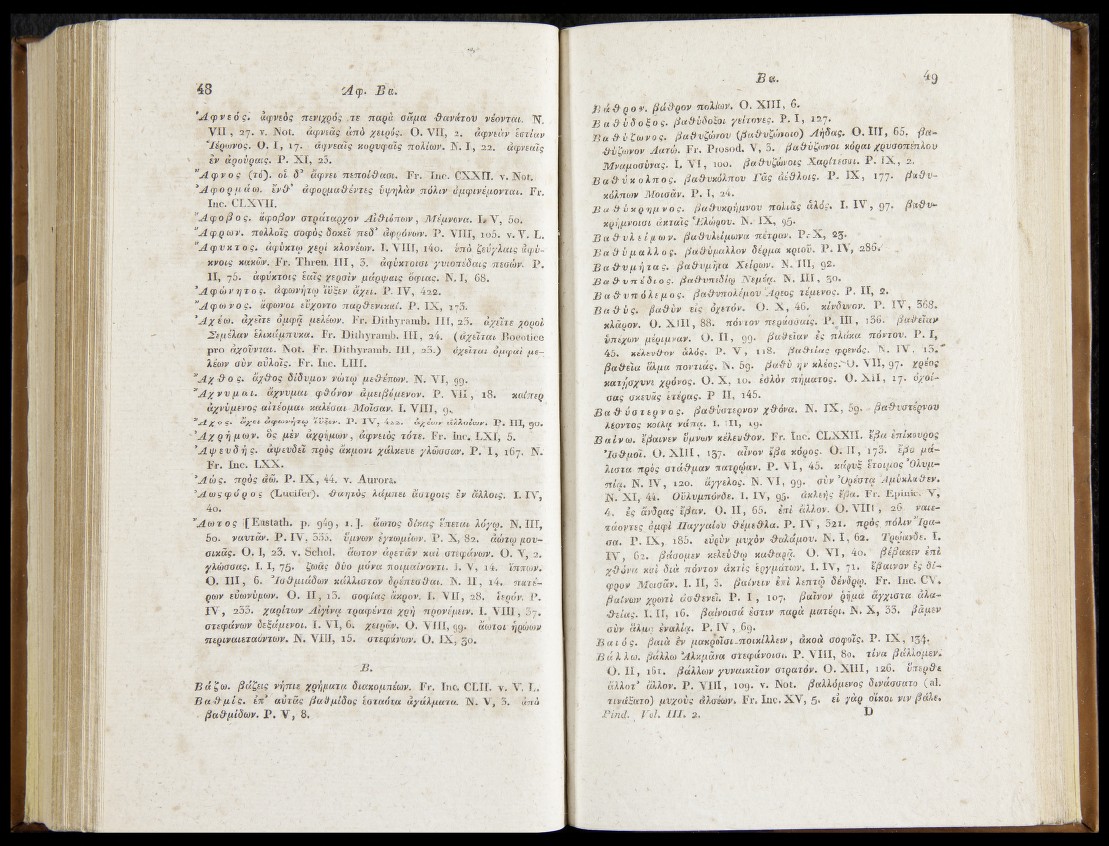 48 Ἀφ. Βα.
Ἀφνεός. ἀφνεὸς πενιχρός τε παρὰ σᾶμα θανάτου νέονται. N.
VII, 27. v. Not. ἀφνιᾶς ἀπὸ χειρός. O. VII, 2. ἀφνεὰν ἑστίαν
Ἱέρωνος. O. I, 17. ἀφνεαῖς κορυφαῖς πολίων. N. I, 22. ἀφνεαῖς
ἐν ἀρούραις. P. XI, 23.
Ἄφνος (τό). οἱ δ᾽ ἄφνει πεποίθασι. Fr. Inc. CXXII. v. Not.
Ἀφορμάω. ἔνθ᾽ ἀφορμαθέντες ὑψηλὰν πόλιν ἀμφινέμονται. Fr.
Inc. CLXVII.
Ἄφοβος. ἄφοβον στράταρχον Αἰθιόπων, Μέμνονα. I. V, 50.
Ἄφρων. πολλοῖς σοφὸς δοκεῖ πεδ᾽ ἀφρόνων. P. VIII, 105. v. V. L.
Ἄφυκτος. ἀφύκτῳ χερὶ κλονέων. I. VIII, 140. ὑπὸ ζεύγλαις ἀφύ-
κνοις κακῶν. Fr. Thren. III, 3. ἀφύκτοισι γυιοπέδαις πεσών. P.
II, 75. ἀφύκτοις ἑαῖς χερσὶν μάρψαις ὄφιας. N. I, 68.
Ἀφώνητος. ἀφωνήτῳ ἴυξεν ἄχει. P. IV, 422.
Ἄφωνος. ἄφωνοι εὔχοντο παρθενικαί. P. IX, 173.
Ἀχέω. ἀχεῖτε ὀμφᾷ μελέων. Fr. Dithyramb. III, 23. ἀχεῖτε χοροὶ
Σεμέλαν ἑλικάμπυκα. Fr. Dithyramb. III, 24. (ἀχεῖται Boeotice
pro ἀχοῦνται. Not. Fr. Dithyramb. III, 23.) ἀχεῖται ὀμφαὶ με-
λέων σὺν αὐλοῖς. Fr. Inc. LIII.
Ἄχθος. ἄχθος δίδυμον νώτῳ μεθέπων. N. VI, 99.
Ἄχνυμαι. ἄχνυμαι φθόνον ἀμειβόμενον. P. VII, 18. καίπερ
ἀχνύμενος αἰτέομαι καλέσαι Μοῖσαν. I. VIII, 9.
Ἄχος. ἄχει ἀφωνήτῳ ἴυξεν. P. IV, 422. ἀχέων ἀλλοίων. P. III, 90.
Ἀχρήμων. ὃς μὲν ἀχρήμων, ἀφνειὸς τότε. Fr. Inc. LXI, 5.
Ἀψευδής. ἀψευδεῖ πρὸς ἄκμονι χάλκευε γλῶσσαν. P. I, 167. N.
Fr. Inc. LXX.
Ἀώς. πρὸς ἀῶ. P. IX, 44. v. Aurora.
Ἀωσφόρος (Lucifer). θαητὸς λάμπει ἄστροις ἐν ἄλλοις. I. IV,
40.
Ἄωτος [Eustath. p. 949, 1.]. ἄωτος δίκας ἕπεται λόγῳ. N. III,
50. ναυτᾶν. P. IV, 335. ὕμνων ἐγκωμίων. P. X, 82. ἀώτῳ μου-
σικᾶς. O. I, 23. v. Schol. ἄωτον ἀρετᾶν καὶ στεφάνων. O. V, 2.
γλώσσας. I. I, 75. ζωᾶς δύο μόνα ποιμαίνοντι. I. V, 14. ἵππων.
O. III, 6. Ἰσθμιάδων κάλλιστον δρέπεσθαι. N. II, 14. πατέ-
ρων εὐωνύμων. O. II, 13. σοφίας ἄκρον. I. VII, 28. ἱερόν. P.
IV, 233. χαρίτων Αἰγίνᾳ τραφέντα χρὴ προνέμειν. I. VIII, 37.
στεφάνων δεξάμενοι. I. VI, 6. χειρῶν. O. VIII, 99. ἄωτοι ἡρώων
περιναιεταόντων. N. VIII, 15. στεφάνων. O. IX, 30.
Β.
Βάζω. βάζεις νήπιε χρήματα διακομπέων. Fr. Inc. CLII. v. V. L.
Βαθμίς. ἐπ᾽ αὐτᾶς βαθμίδος ἑσταότα ἀγάλματα. N. V, 3. ἀπὸ
βαθμίδων. P. V, 8.
Βα. 49
Βάθρον. βάθρον πολίων. O. XIII, 6.
Βαθύδοξος. βαθύδοξοι γείτονες. P. I, 127.
Βαθύζωνος. βαθυζώνου (βαθυζώνοιο) Λήδας. O. III, 65. βα-
θύζωνον Λατώ. Fr. Prosod. V, 3. βαθύζωνοι κόραι χρυσοπέπλου
Μναμοσύνας. I. VI, 100. βαθυζώνοις Χαρίτεσσι. P. IX, 2.
Βαθύκολπος. βαθυκόλπου Γᾶς ἀέθλοις. P. IX, 177. βαθυ-
κόλπων Μοισᾶν. P. I, 24.
Βαθύκρημνος. βαθυκρήμνου πολιᾶς ἁλός. I. IV, 97. βαθυ-
κρήμνοισι ἀκταῖς Ἑλώρου. N. IX, 95.
Βαθυλείμων. βαθυλείμωνα πέτραν. P. X, 23.
Βαθύμαλλος. βαθύμαλλον δέρμα κριοῦ. P. IV, 286.
Βαθυμήτας. βαθυμῆτα Χείρων. N. III, 92.
Βαθυπέδιος. βαθυπεδίῳ Νεμέᾳ. N. III, 30.
Βαθυπόλεμος. βαθυπολέμου Ἄρεος τέμενος. P. II, 2.
Βαθύς. βαθὺν εἰς ὀχετόν. O. X, 46. κίνδυνον. P. IV, 368.
κλᾶρον. O. XIII, 88. πόντον περάσσαις. P. III, 136. βαθεῖαν
ὑπέχων μέριμναν. O. II, 99. βαθεῖαν ἐς πλάκα πόντου. P. I,
45. κέλευθον ἁλός. P. V, 118. βαθείας φρενός. N. IV, 13.
βαθεῖα ἅλμα ποντιάς. N. 59. βαθὺ ην κλέος. O. VII, 97. χρέος
καταίσχυνε χρόνος. O. X, 10. ἐσλὸν πήματος. O. XII, 17. ὀχοί-
σας σκευὰς ἑτέρας. P II, 145.
Βαθύστερνος. βαθύστερνον χθόνα. N. IX, 59. βαθυστέρνου
λέοντος κοίλᾳ νάπᾳ. I. III, 19.
Βαίνω. ἔβαινεν ὕμνων κέλευθον. Fr. Inc. CLXXII. ἔβα ἐπίκουρος
Ἰσθμοῖ. O. XIII, 137. αἶνον ἔβα κόρος. O. II, 173. ἔβα μά-
λιστα πρὸς στάθμαν πατρῴαν. P. VI, 45. κάρυξ ἑτοῖμος Ὀλυμ-
πίᾳ. N. IV, 120. ἄγγελος. N. VI, 99. σὺν Ὀρέστᾳ Ἀμύκλαθεν.
N. XI, 44. Οὐλυμπόνδε. I. IV, 95. ἀκλεὴς ἔβα. Fr. Epinic. V,
4. ἐς ἄνδρας ἔβαν. O. II, 65. ἐπὶ ἄλλον. O. VIII, 26. ναιε-
τάοντες ἀμφὶ Παγγαίου θέμεθλα. P. IV, 321. πρὸς πόλιν Ἴρα-
σα. P. IX, 185. εὐρὺν μυχὸν θαλάμου. N. I, 62. Τρῴανδε. I.
IV, 62. βάσομεν κελεύθῳ καθαρᾷ. O. VI, 40. βέβακεν ἐπὶ
χθόνα καὶ διὰ πόντον ἀκτὶς ἐργμάτων. I. IV, 71. ἔβαινον ἐς δί-
φρον Μοισᾶν. I. II, 3. βαίνειν ἐπὶ λεπτῷ δένδρῳ. Fr. Inc. CV.
βαίνων χρωτὶ ἀσθενεῖ. P. I, 107. βαῖνον ῥῆμα ἄγχιστα ἀλα-
θείας. I. II, 16. βαίνοισά ἐστιν παρὰ ματέρι. N. X, 33. βᾶμεν
σὺν ἅλμᾳ ἐναλίᾳ. P. IV, 69.
Βαιός. βαιὰ ἐν μακροῖσι ποικίλλειν, ἀκοὰ σοφοῖς. P. IX, 134.
Βάλλω. βάλλω Ἀλκμᾶνα στεφάνοισι. P. VIII, 80. τίνα βάλλομεν.
O. II, 161. βάλλων γυναικεῖον στρατόν. O. XIII, 126. ὕπερθε
ἄλλοτ᾽ ἄλλον. P. VIII, 109. v. Not. βαλλόμενος δινάσσατο (al.
τινάξατο) μυχοὺς ἀλσέων. Fr. Inc. XV, 5. εἰ γὰρ οἴκοι νιν βάλε.
Pind. Vol. III. 2. D